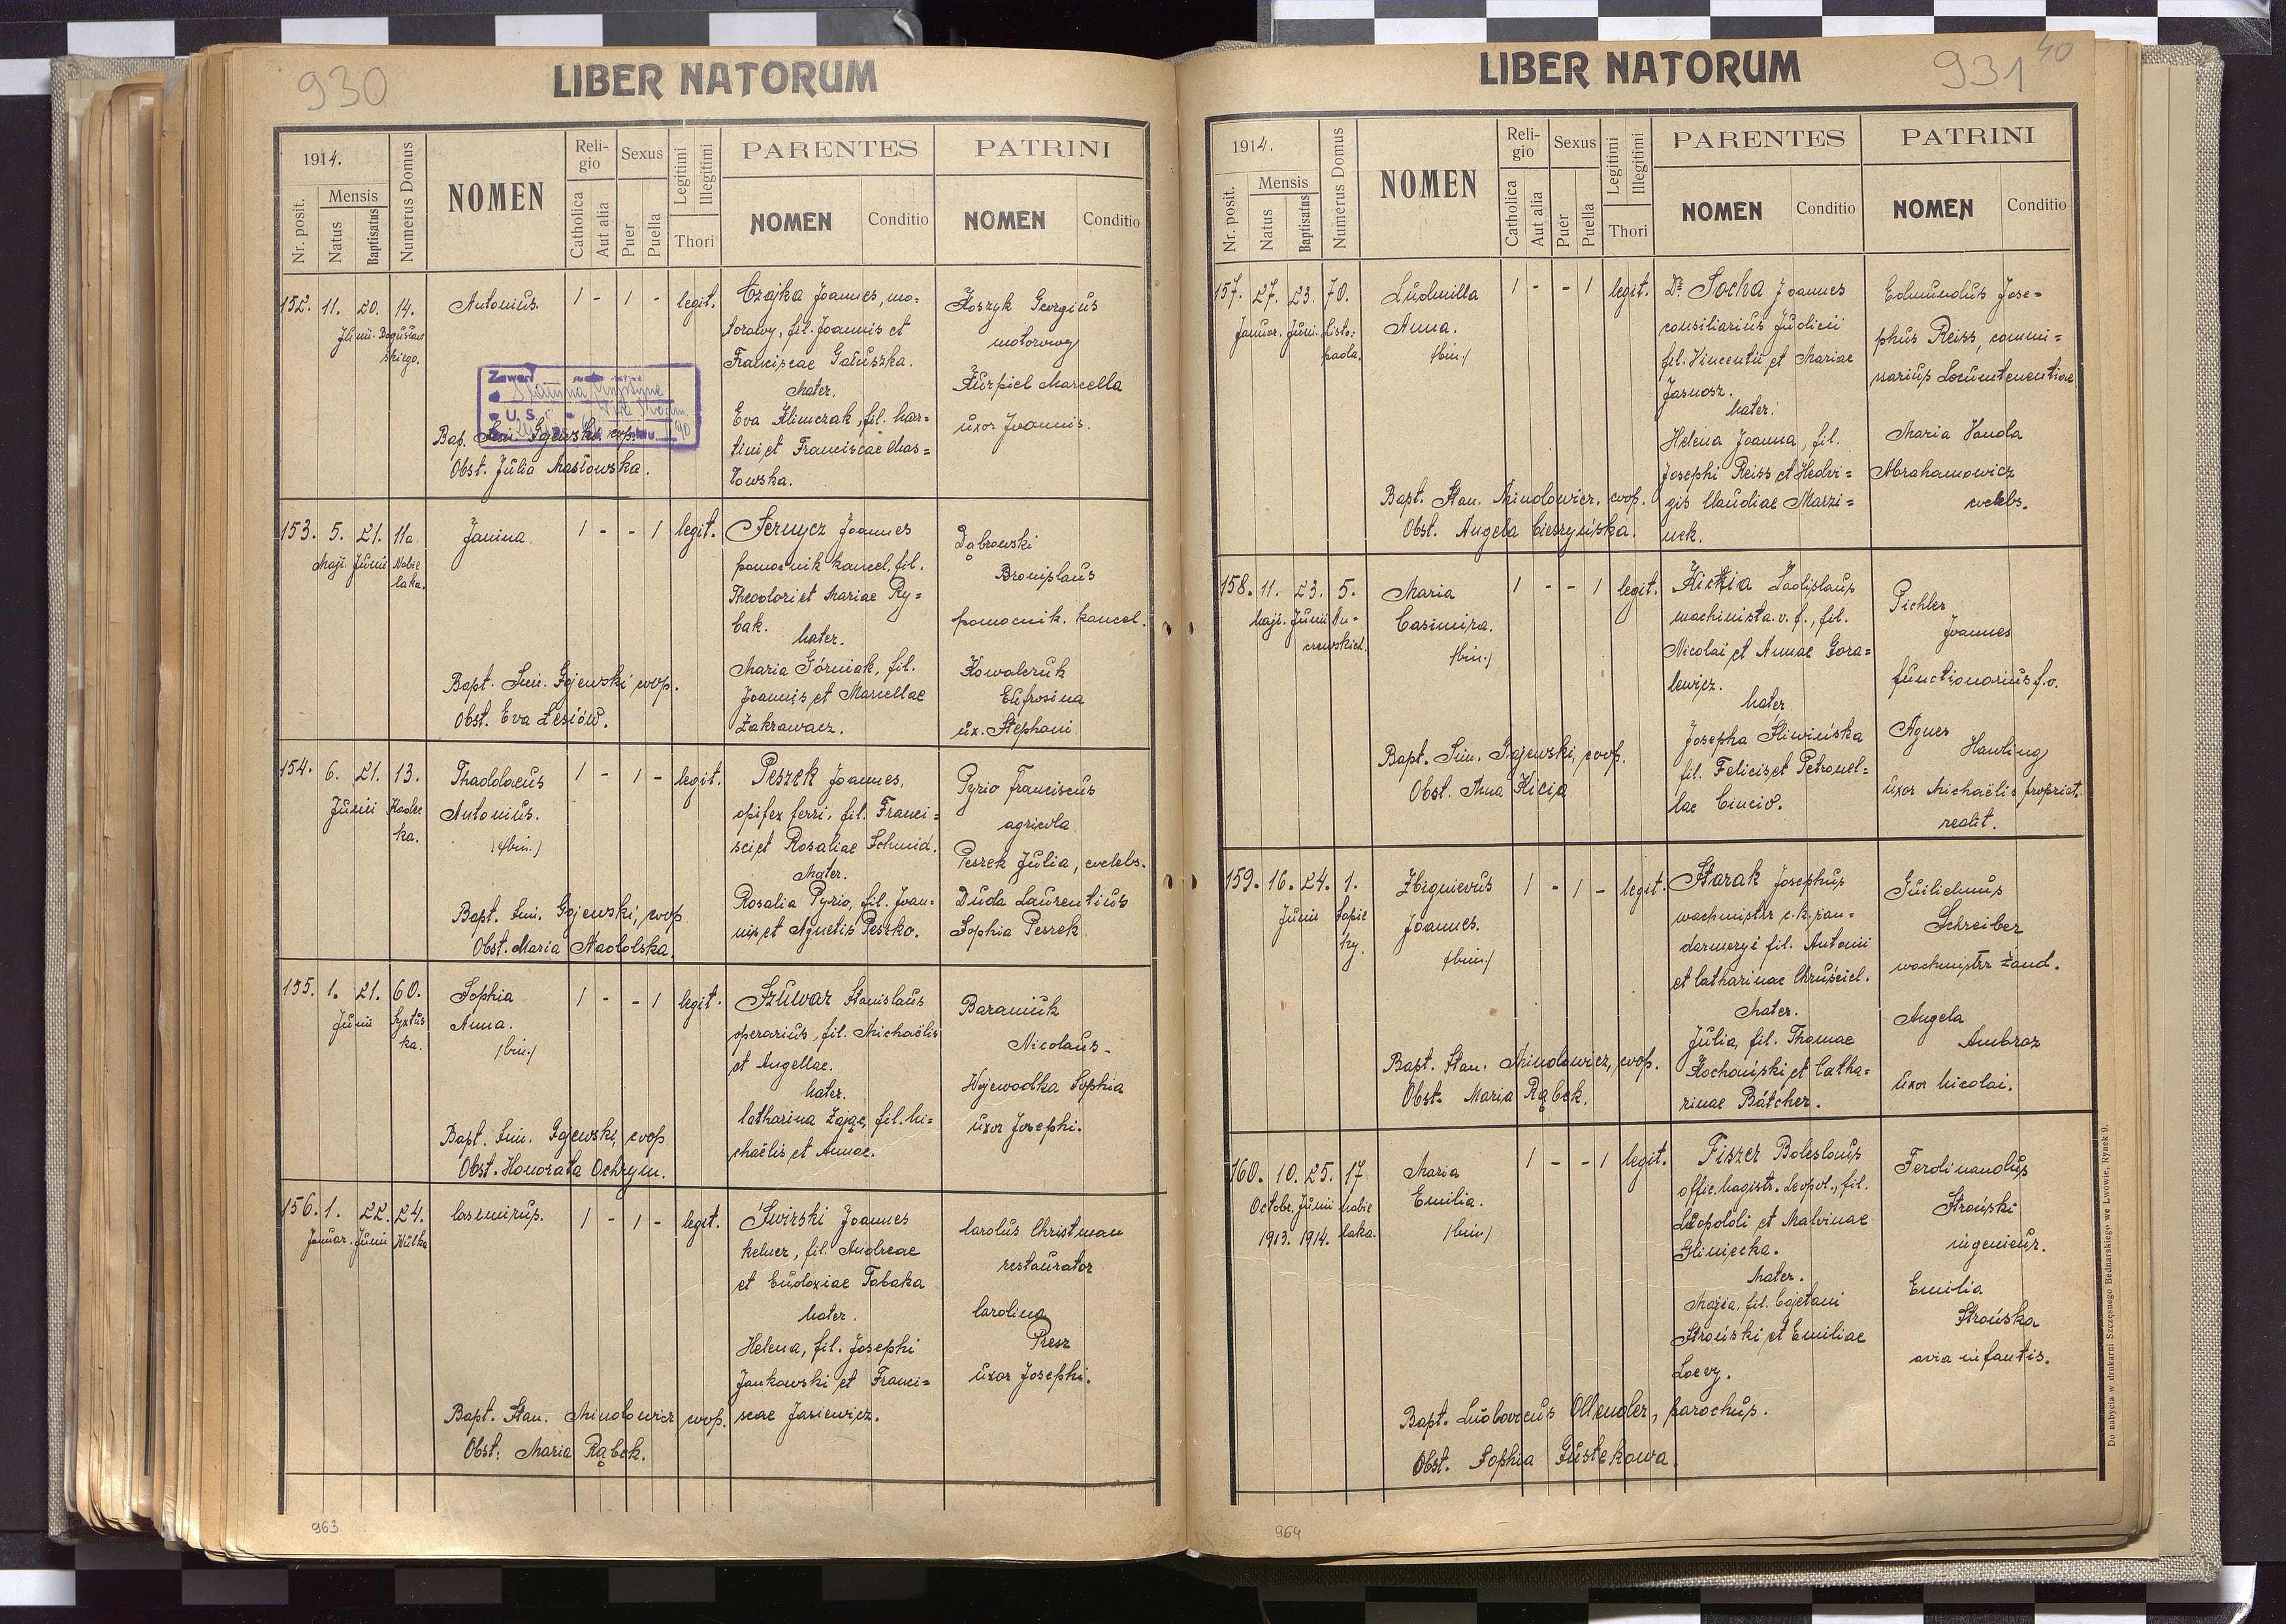 930
LIBER NATORUM
1914.
Nr. posit.
Mensis
Natus
Baptisatus
Numerus Domus
NOMEN
Religio
Catholica
Aut alia
Sexus
Puer
Puella
Legitimi
Illegitimi
Thori
PARENTES
NOMEN
Conditio
PATRINI
NOMEN
Conditio
152. 11. 20. 14.
Junii Bogusław
skiego.
Antonius.
1 - 1 - legit.
Czajka Joannes, mo-
torowy, fil. Joannis et
Franciscae Gałuszka.
Mater.
Eva Klimczak, fil. Mar=
tini et Franciscae Mas=
łowska.
Koszyk Georgius
motorowy
Kurpiel Marcella
uxor Joannis.
U. S.
Bap. Sim. Gajewski, coop.
Obst. Julia Masłowska.
153. 5. 21. 11a.
Maji. Junii Nabie
laka.
Janina
1 - - 1 legit.
Fernycz Joannes
pomocnik kancel, fil.
Theodori et Mariae Ry=
bak.
Mater.
Maria Górniak, fil.
Joannis et Marcellae
Zakrawacz.
Dąbrowski
Bronislaus
pomocnik. kancel.
Kowalczuk
Eufrosina
ux. Stephani
Bapt. Sim. Gajewski coop.
Obst. Eva Łesiów.
154. 6. 21. 13.
Junii Kadec
ka.
Thaddaeus
Antonius.
/bin./
1 - 1 - legit.
Peszek Joannes,
opifex ferri, fil. Franci=
sci et Rosaliae Schmid.
Mater.
Rosalia Pyrio, fil. Joan=
nis et Agnetis Peszko.
Pyrio Franciscus
agricola
Peszek Julia, coelebs.
Duda Laurentius
Sophia Peszek
Bapt. Sim. Gajewski, coop
Obst. Maria Nadolska.
155. 1. 21. 60.
Junii Syxtus
ka.
Sophia
Anna.
/bin./
1 - - 1 legit.
Szuwar Stanislaus
operarius, fil. Michaëlis
et Angellae.
Mater.
Catharina Zając, fil. Mi=
chaëlis et Annae.
Baraniuk
Nicolaus-
Wojewodka Sophia
uxor Josephi.
Bapt. Sim. Gajewski, coop
Obst. Honorata Ochrym.
156. 1. 22. 24.
Januar. Junii Wulka
Casimirus.
1 - 1 - legit.
Swirski Joannes
kelner, fil. Andreae
et Eudoxiae Tabaka
Mater.
Helena, fil. Josephi
Jankowski et Franci=
scae Jasiewicz.
Carolus Christman
restaurator
Carolina
Presz
uxor Josephi.
Bapt. Stan. Mindowicz coop.
Obst. Maria Rąbek.
963
931
40
LIBER NATORUM
1914.
Nr. posit.
Mensis
Natus
Baptisatus
Numerus Domus
NOMEN
Religio
Catholica
Aut alia
Sexus
Puer
Puella
Legitimi
Illegitimi
Thori
PARENTES
NOMEN
Conditio
PATRINI
NOMEN
Conditio
157. 27. 23. 70.
Januar. Juni. Listo-
pada.
Ludmilla
Anna.
/bin./
1 - - 1 legit.
Dr. Socha Joannes
consiliarius Judicii
fil. Vincentii et Mariae
Jasnosz.
Mater.
Helena Joanna, fil.
Josephi Reiss et Hedvi=
gis Claudiae Marzi=
nek.
Edmundus Jose=
phus Reiss, commi=
sarius Locumtenentiae
Maria Vanda
Abrahamowicz
coelebs.
Bapt. Stan. Mindowicz. coop.
Obst. Angela Cieszyńska.
158. 11. 23. 5.
Maji. Junii
Maria
Casimira.
/bin./
1 - - 1 legit.
Kickia Ladislaus
machinista v. f., fil.
Nicolai et Annae Gora=
lewicz.
Mater
Josepha Śliwińska
fil. Felicis et Petronel=
lae Ciució.
Pichler
Joannes
functionarius f. v.
Agnes
Hawling
uxor Michaëlis propriet.
realit.
Bapt. Sim. Gajewski, coop.
Obst. Anna Kicia
159. 16. 24. 1.
Junii Sapie
hy.
Zbignievus
Joannes.
/bin./
1 - 1 - legit.
Starak Josephus
wachmistrz c. k. żan=
darmeryi fil. Antonii
et Catharinae Chruściel.
Mater.
Julia, fil. Thomae
Kochański et Catha=
rinae Bätcher.
Guilielmus
Schreiber
wachmistrz żand.
Angela
Ambroz
uxor Nicolai.
Bapt. Stan. Mindowicz, coop.
Obst. Maria Rąbek.
160. 10. 25. 17.
Octobr. Junii Nabie
1913. 1914. laka.
Maria
Emilia.
/bin/
1 - - 1 legit.
Fiszer Boleslaus
offic. Magistr. Leopol., fil.
Leopoldi et Malvinae
Gliniecka.
Mater.
Maria, fil. Cajetani
Stroński et Emiliae
Loevy.
Ferdinandus
Stroński
ingenieur.
Emilia
Strońska
avia infantis.
Bapt. Ludovicus Ollender, parochus.
Obst. Sophia Gustekowa.
Do nabycia w drukarni Szczęsnego Bednarskiego we Lwowie, Rynek 9.
964